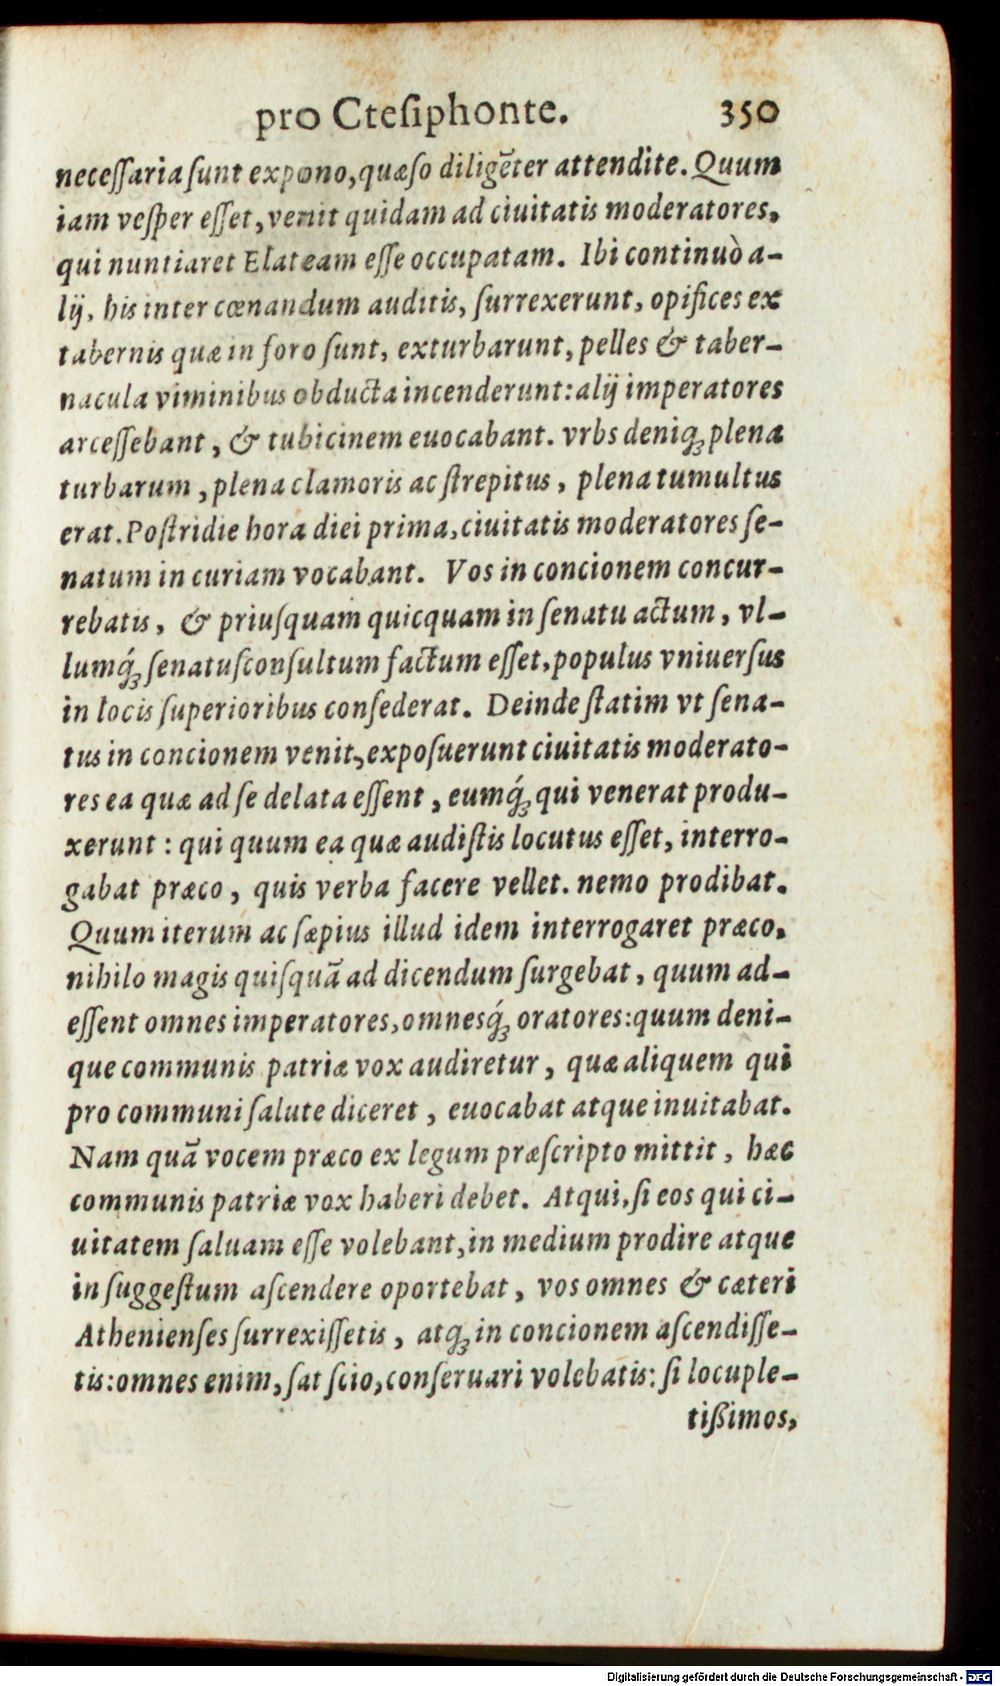 pro Cteſiphonte. 350
neceſſaria ſunt expono, quæſo diligēter attendite. Quum
iam veſper eſſet, venit quidam ad ciuitatis moderatores,
qui nuntiaret Elateam eſſe occupatam. Ibi continuò a-
lij, his inter cœnandum auditis, ſurrexerunt, opifices ex
tabernis quæ in foro ſunt, exturbarunt, pelles & taber-
nacula viminibus obducta incenderunt: alij imperatores
arceſſebant, & tubicinem euocabant. vrbs deniq́; plena
turbarum, plena clamoris ac ſtrepitus, plena tumultus
erat. Poſtridie hora diei prima, ciuitatis moderatores ſe-
natum in curiam vocabant. Vos in concionem concur-
rebatis, & priuſquam quicquam in ſenatu actum, vl-
lumq́; ſenatuſconſultum factum eſſet, populus vniuerſus
in locis ſuperioribus conſederat. Deinde ſtatim vt ſena-
tus in concionem venit, expoſuerunt ciuitatis moderato-
res ea quæ ad ſe delata eſſent, eumq́; qui venerat produ-
xerunt: qui quum ea quæ audiſtis locutus eſſet, interro-
gabat præco, quis verba facere vellet. nemo prodibat.
Quum iterum ac ſæpius illud idem interrogaret præco,
nihilo magis quiſquã ad dicendum ſurgebat, quum ad-
eſſent omnes imperatores, omnesq́; oratores: quum deni-
que communis patriæ vox audiretur, quæ aliquem qui
pro communi ſalute diceret, euocabat atque inuitabat.
Nam quã vocem præco ex legum præſcripto mittit, hæc
communis patriæ vox haberi debet. Atqui, ſi eos qui ci-
uitatem ſaluam eſſe volebant, in medium prodire atque
in ſuggeſtum aſcendere oportebat, vos omnes & cæteri
Athenienſes ſurrexiſſetis, atq; in concionem aſcendiſſe-
tis: omnes enim, ſat ſcio, conſeruari volebatis: ſi locuple-
tißimos,
Digitalisierung gefördert durch die Deutsche Forschungsgemeinschaft - DFG